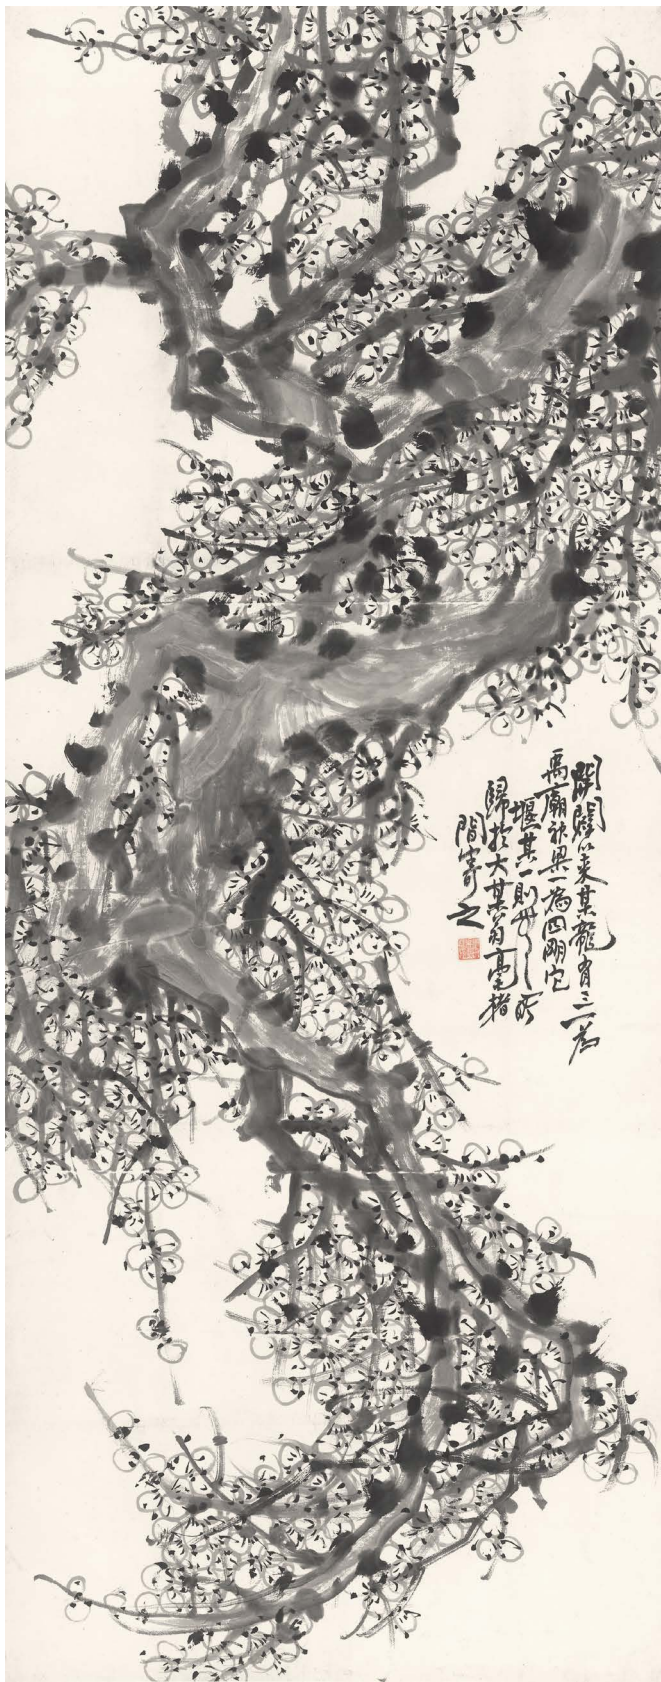 開闢以來某龍有三一為
禹廟梁一為四明它
堰其一則毋
歸於大某翁毫楮
間寄之